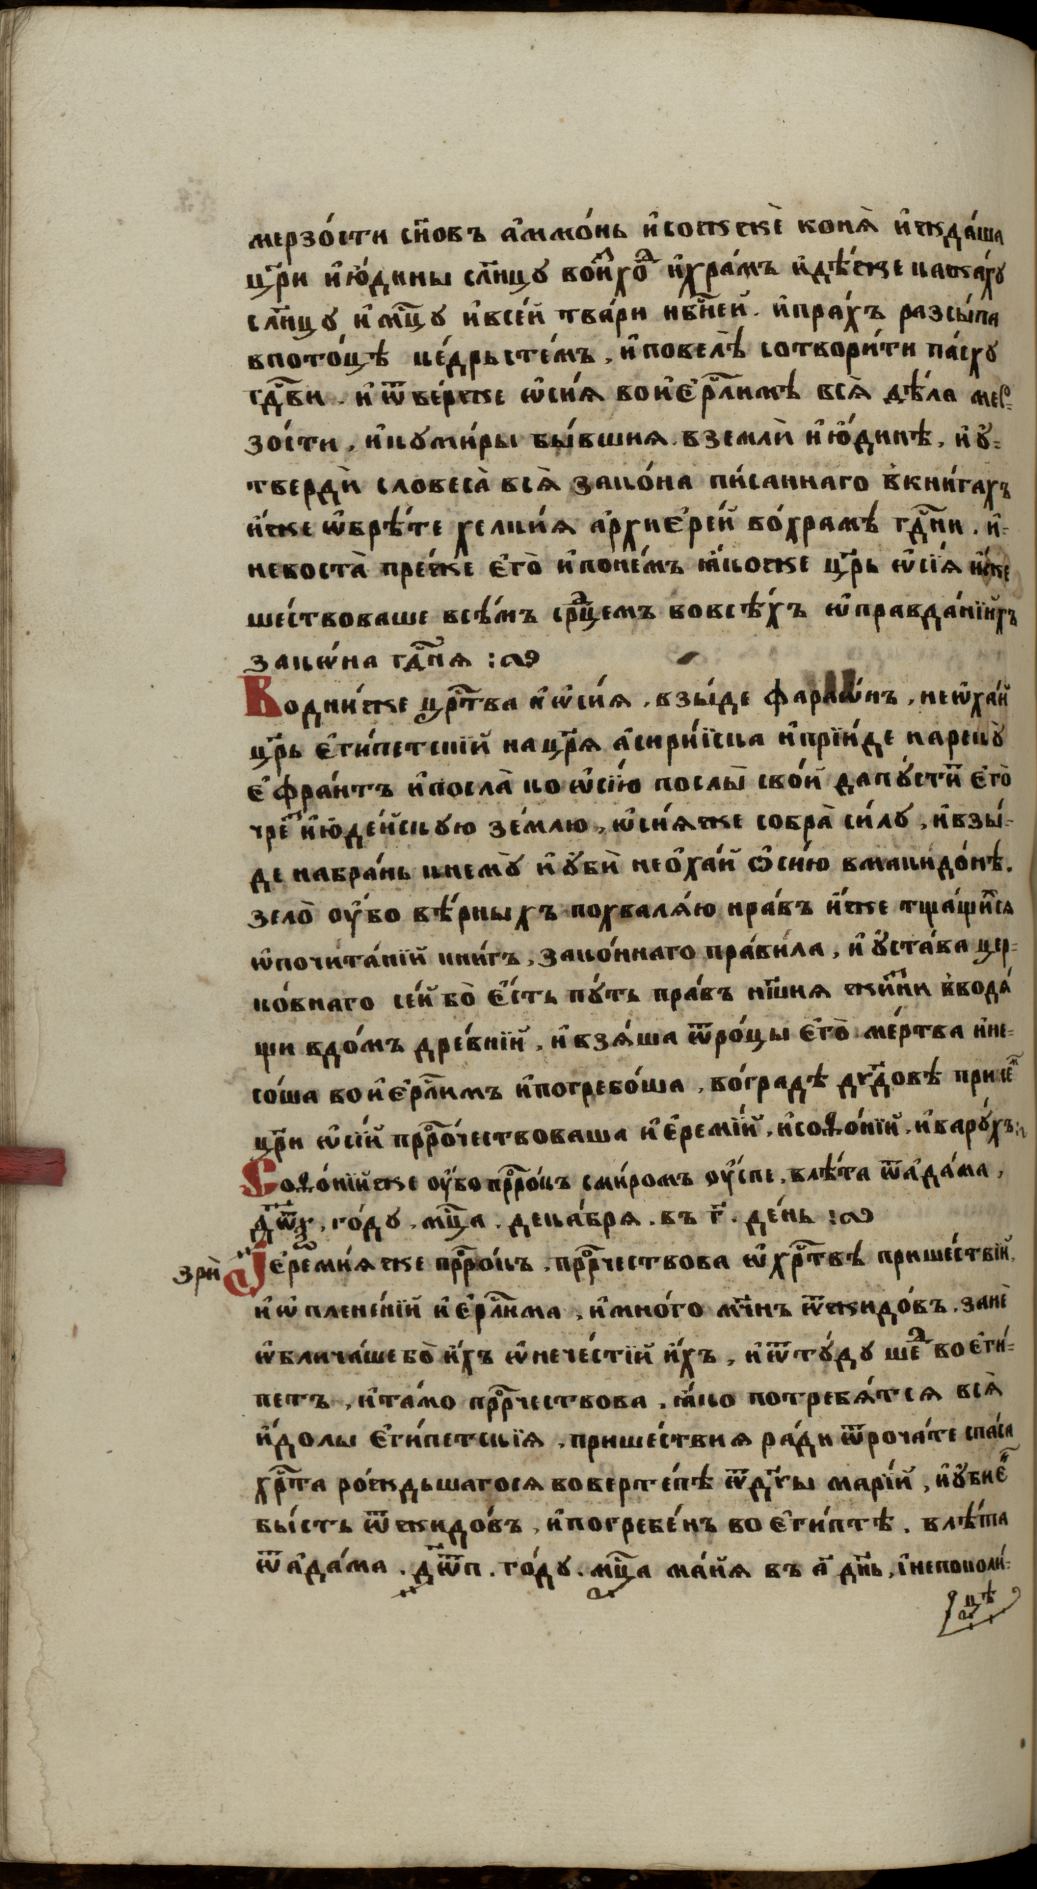 мерзо́сти сн҃овъ а҆ммо́нь и҆сожжѐ коня̀ и҆ жда́ша
цр҃и и҆ю́дины сл҃нцу во и҆схо́д и҆хра́мъ и҆дѣ́же кажа́ху
сл҃нцу и҆ мц҃у и҆всей тва́ри нбⷭ҇ней. и҆пра́хъ разсы́па
впото́цѣ ке́дрьстемъ, и҆повелѣ̀ сотвори́ти па́сху
гдⷭ҇ви. и҆ ѿве́рже ѡ҆сі́я во и҆ерⷭ҇ли́мѣ вся̀ дѣ́ла мер-
зо́сти, и҆куми́ры бы́вшия. в землѝ и҆ю́динѣ, и҆ ᲂу҆-
твердѝ словеса̀ вся̀ зако́на пи́саннаго в кни́гахъ
и҆́же ѡ҆брѣ́те хелки́я а҆рхиере́й во́храмѣ гдⷭ҇ни. и҆-
невоста̀ пре́же его̀ и҆понемъ ꙗ҆коже цр҃ь ѡ҆сі́я и҆́же
ше́ствоваше всѣ́мъ срⷣцемъ вовсѣ́хъ ѡ҆правда́нїихъ
зако́на гдⷭ҇ня :
Во дни́же црⷭ҇тва и҆ѡ҆си́я. взы́де фараѡ́нъ, неѡ҆ха́й
цр҃ь еги́петскїй на цр҃я а҆сири́йска и҆прїи́де на реку̀
ефра́нтъ и҆посла̀ ко ѡ҆сі́ю послы̀ свои́ да пу́стит его̀
чре́з и҆юде́йскую зе́млю, ѡ҆си́яже собра̀ си́лу, и҆взы́-
де на бра́нь к нему̀ и҆ ᲂу҆бѝ нео҆ха́й ѡ҆си́ю в макидо́нѣ.
зело̀ ᲂу҆́бо вѣ́рныхъ похваля́ю нра́въ и҆́же тща́щихся
ѡ҆почита́нїй кни́гъ, зако́ннаго пра́вила, и҆ ᲂу҆ста́ва цер-
ко́внаго се́й бо̀ е҆́сть пу́ть пра́въ нн҃шния жи́зни вводя́-
щи вдо́мъ дре́внїй, и҆взя́ша ѿро́цы его̀ ме́ртва и҆не-
со́ша во и҆ерⷭ҇ли́мъ и҆погребо́ша, во́градѣ дв҃довѣ при сем
цр҃и ѡ҆сі́й прⷪ҇ро́чествоваша и҆ереми́й, и҆соѳо́нїй, и҆вару́хъ:
Соѳо́нїйже ᲂу҆бо прⷪ҇ро́къ сми́ромъ ᲂу҆спе, влѣ́та ѿа҆да́ма,
д҃ѿѯ, го́ду, мц҃а. дека́бря. въ г҃. де́нь :
зри̇̀ Іереми́яже прⷪ҇ро́къ, прⷪ҇ро́чествова ѡ҆ хрⷭ҇товѣ прише́ствїй,
и҆ ѡ҆ плене́нїй и҆ерⷭ҇ли́ма, и҆мно́го мч҃инъ ѿ жидо́въ. занѐ
ѡ҆блича́ше бо̀ и҆́хъ ѡ҆нече́стїй и҆́хъ, и҆ѿту́ду шед во еги́-
петъ, и҆та́мо прⷪ҇ро́чествова, ꙗ҆́ко потребя́тся вся̀
и҆́долы еги́петскїя, прише́ствия ра́ди ѿроча́те спа́са
хрⷭ҇та ро́ждьшагося во верте́пѣ ѿ дв҃ы мари́й, и҆ ᲂу҆бие́н
бы́сть ѿ жидо́въ, и҆погребе́нъ во еги́птѣ. влѣ́та
ѿа҆да́ма. д҃ѿп. го́ду. мц҃а ма́йя въ а҃ дн҃ь, і҆непоколи́-
цѣ